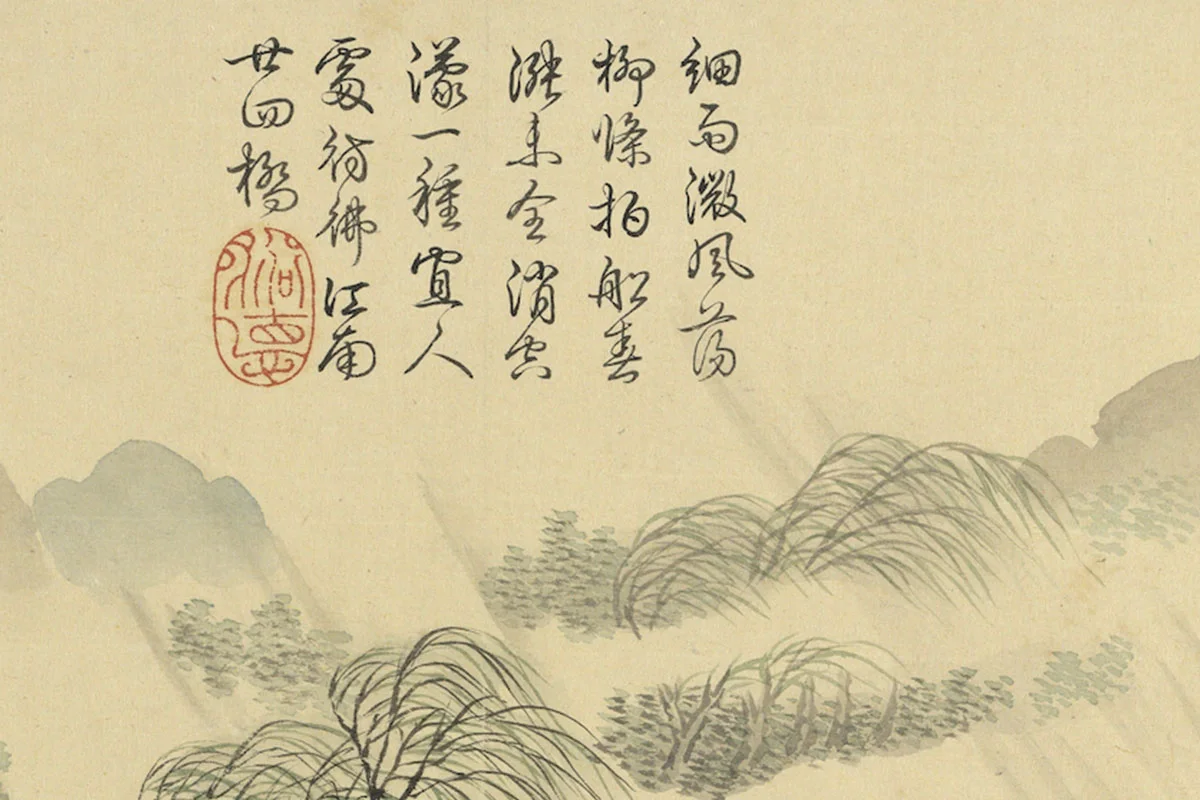 細雨微風蕩
柳條拍船春
漲未全消空
濛一種宜人
處彷彿江南
廿四橋